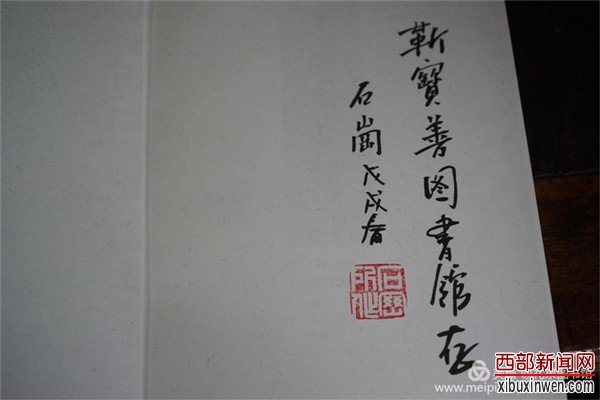 靳寶善图書館存
石崗戊戌春
西部新闻网
xibuxinwen.com